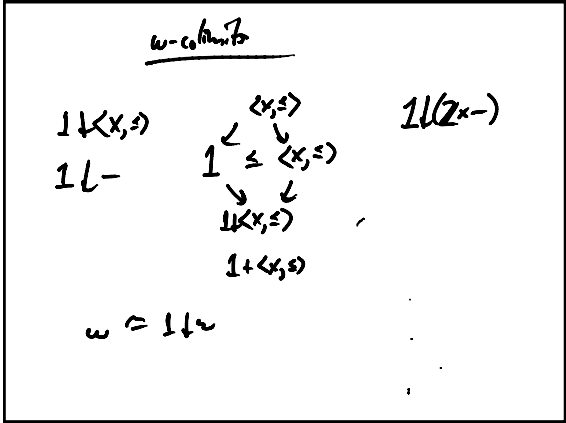 ω-colimits
1↓<x,≤>
<x,≤>
1↓(2×-)
1 ≤ <x,≤>
1↓-
1↓<x,≤>
1+<x,≤>
ω ≃ 1↓ω